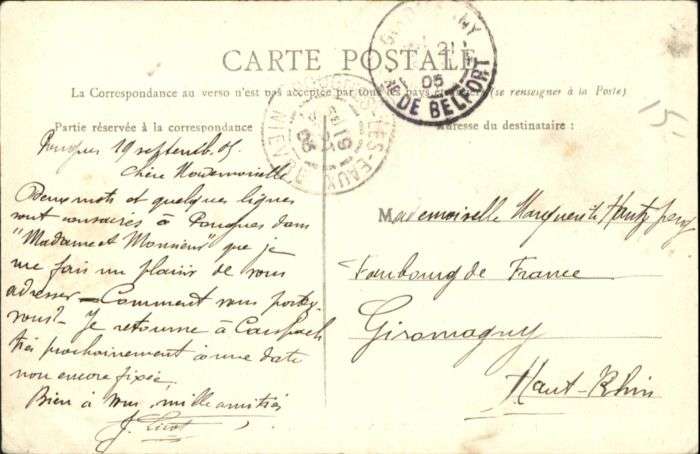 CARTE POSTALE
La Correspondance au verso n'est pas acceptée par tous les pays étrangers (se renseigner à la Poste)
Partie réservée à la correspondance
Adresse du destinataire :
GIROMAGNY
21
05
DE BELFORT
POUGUES-LES-EAUX
NIEVRE
19
05
15-
Pougues 19 septemb. 05
Chère Mademoiselle
Deux mots et quelques lignes
sont consacrés à Pougues dans
"Madame et Monsieur" que je
me fais un plaisir de vous
adresser - Comment vous portez
vous? - Je retourne à
très prochainement à une date
non encore fixée,
Bien à vous, mille amitiés
J.
Mademoiselle Marguerite
Faubourg de France
Giromagny
Haut-Rhin